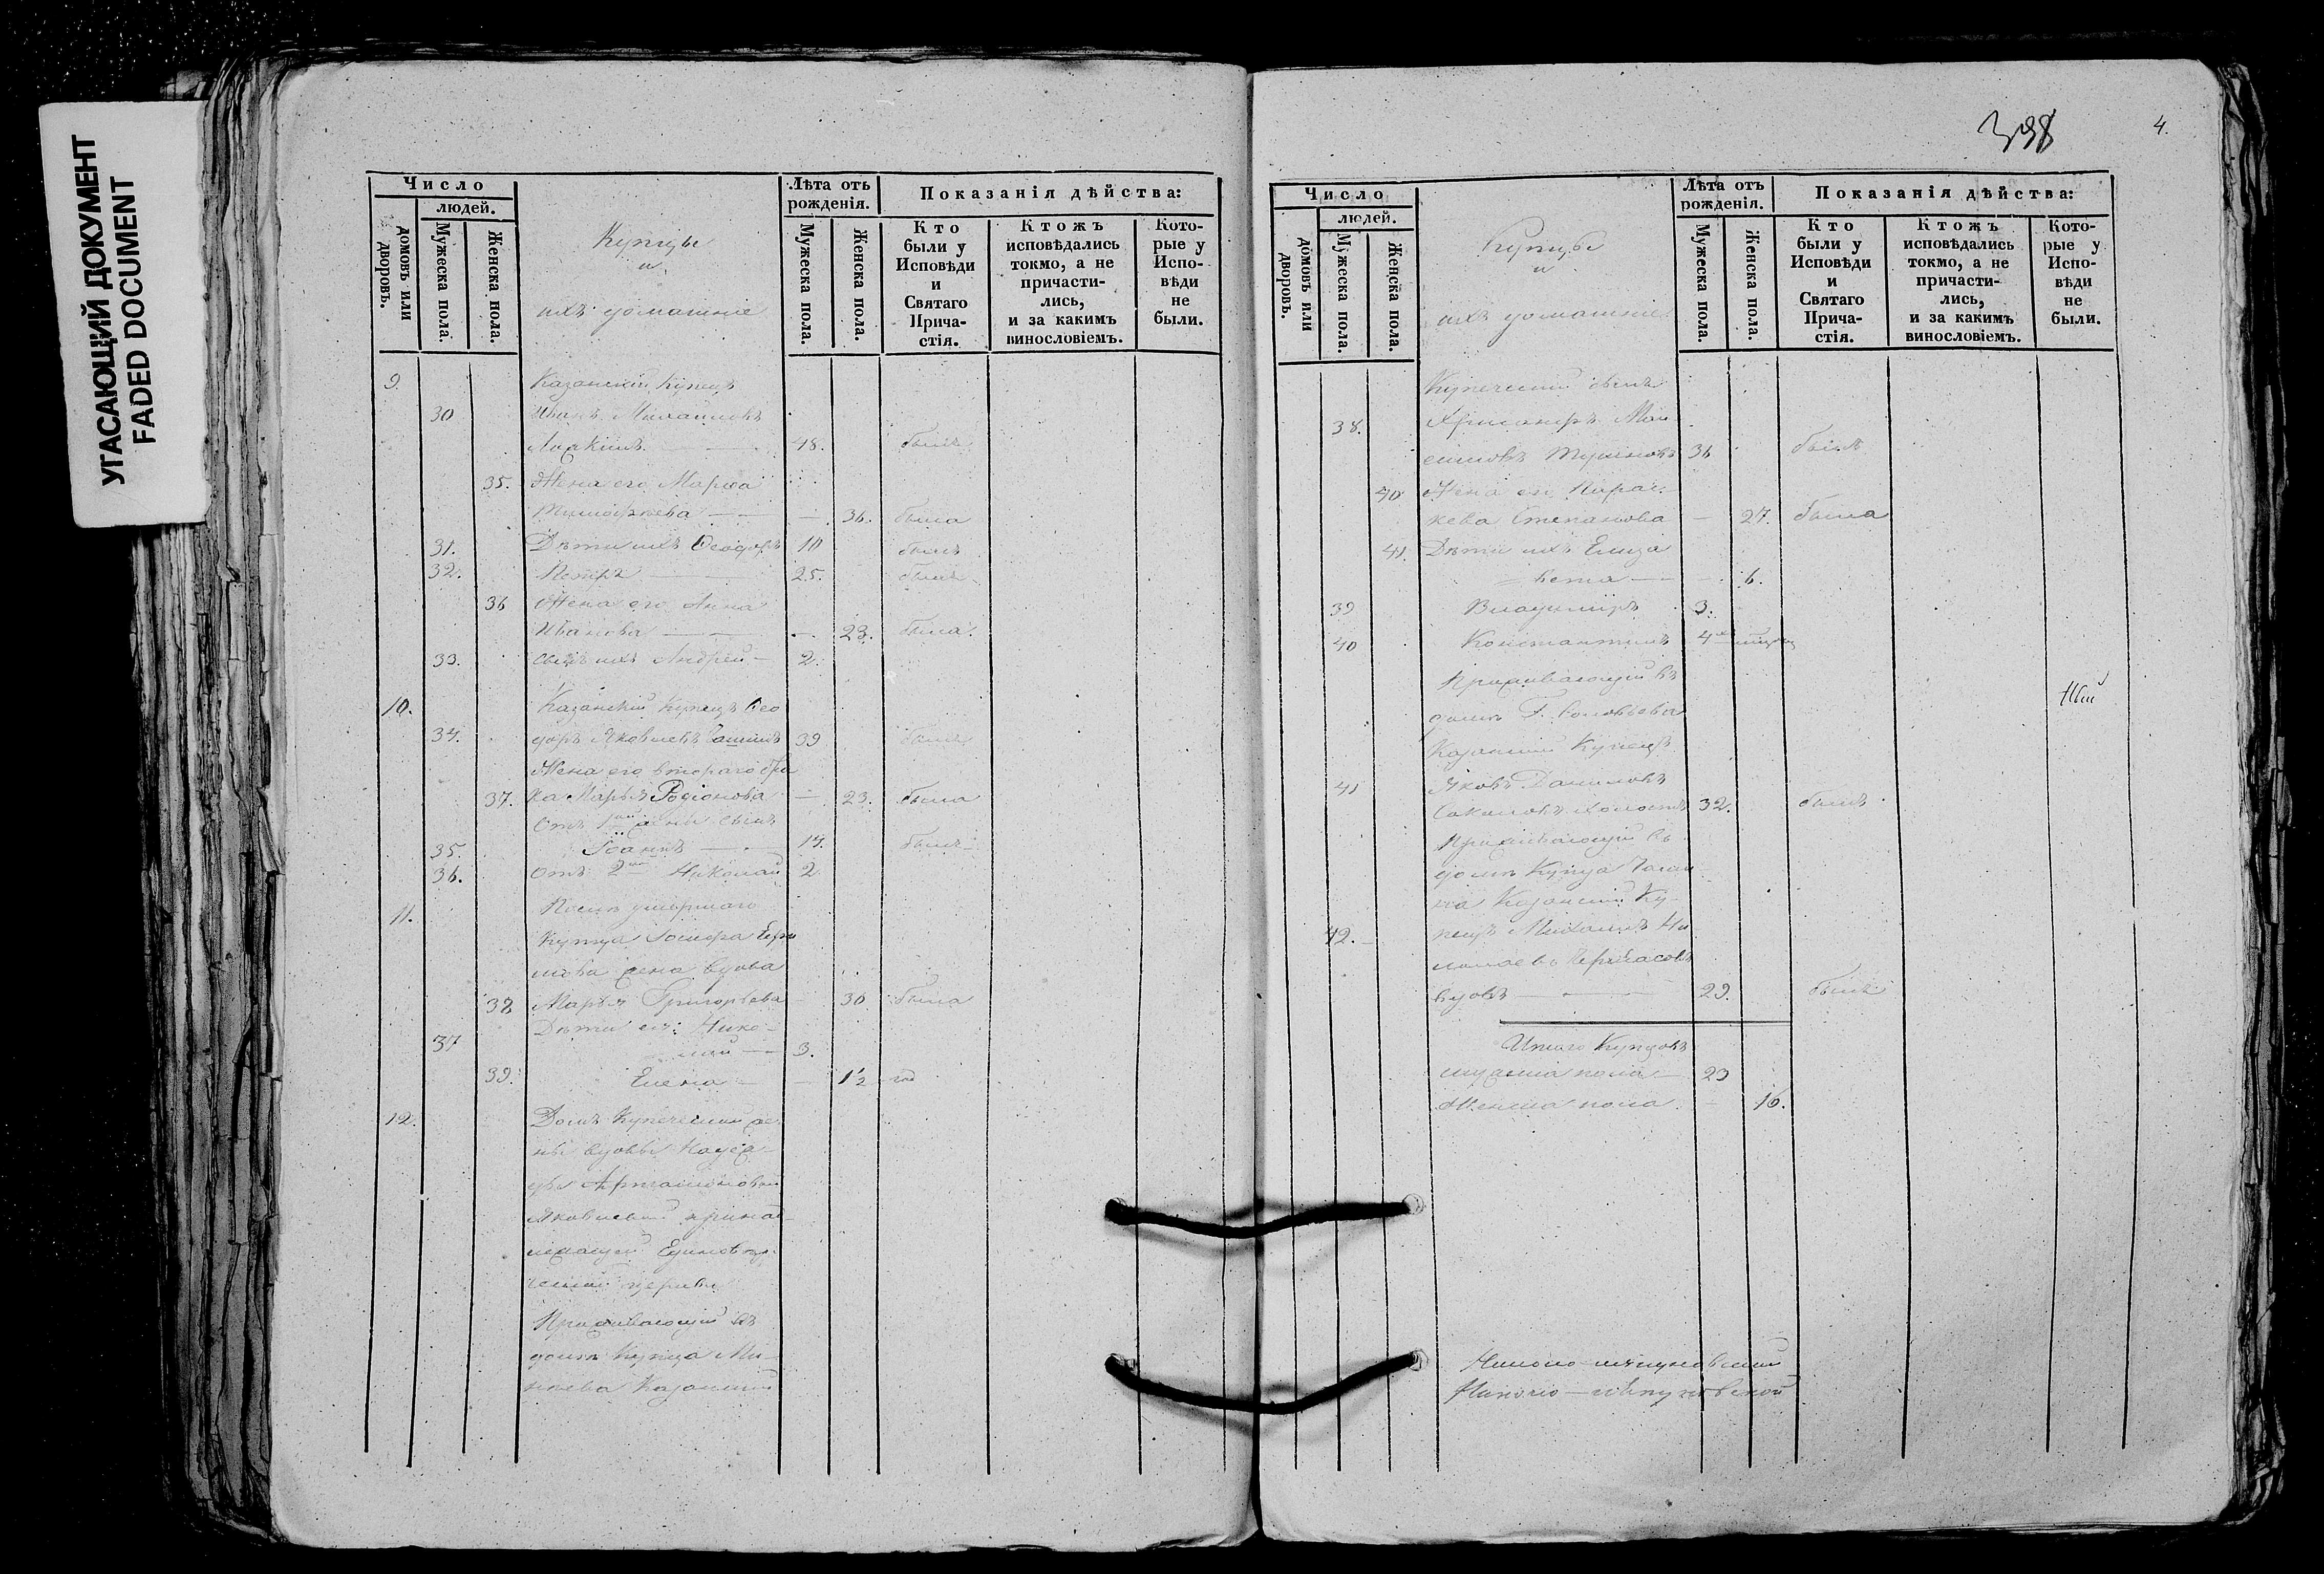 УГАСАЮЩИЙ ДОКУМЕНТ
FADED DOCUMENT
Число
людей.
домовъ или дворовъ.
Мужеска пола.
Женска пола.
Купцы
и
ихъ домашніе
Лѣта отъ рожденія.
Мужеска пола.
Женска пола.
Показанія дѣйства:
Кто были у Исповѣди и Святаго Прича-стія.
Ктожъ исповѣдались токмо, а не причасти-лись, и за какимъ винословіемъ.
Кото-рые у Испо-вѣди не были.
9. Казанскій Купецъ
30 Иванъ Михайловъ
48. былъ
35. Жена его Марѳа
Тимоѳеева — 36. была
31. Дѣти ихъ Ѳеодоръ 10 былъ
32. Петръ 25. былъ
36 Жена его Анна
Иванова — 23. была.
33. сынъ ихъ Андрей — 2.
10. Казанскій Купецъ Ѳео
34. доръ Яковлевъ 39 былъ
Жена его втораго бра
37. ка Марья Родіонова — 23. была
Отъ 1й жены сынъ
35. Іоаннъ — 14. былъ
36. Отъ 2й Николай 2
11. Послѣ умершаго
Купца
жена вдова
38 Марья Григорьева — 30 была
Дѣти ея: Нико-
37 лай — 3.
39. Елена — 1½ год
12. Домъ Купеческой же-
ны вдовы
Яковлевой принад-
лежащей Единовѣр-
ческой церкви
Проживающій въ
домѣ Купца
Казанскій
398
4.
Число
людей.
домовъ или дворовъ.
Мужеска пола.
Женска пола.
Купцы
и
ихъ домашніе
Лѣта отъ рожденія.
Мужеска пола.
Женска пола.
Показанія дѣйства:
Кто были у Исповѣди и Святаго Прича-стія.
Ктожъ исповѣдались токмо, а не причасти-лись, и за какимъ винословіемъ.
Кото-рые у Испо-вѣди не были.
Купеческій сынъ
38.
36 былъ
40 Жена его Парас-
кева Степанова — 27. была
41. Дѣти ихъ Елиза
= вета — 6.
39 Владиміръ 3.
40 Константинъ 4
Проживающій въ
домѣ Г. Соловьева
Казанскій Купецъ
41 Яковъ Даниловъ
Соколовъ холостъ 32. былъ
Проживающій въ
домѣ Купца
Казанскій Ку-
42. пецъ Михаилъ Ни
колаевъ
вдовъ — 29. былъ
Итого Купцовъ
мужеска пола — 23
Женска пола — 16.